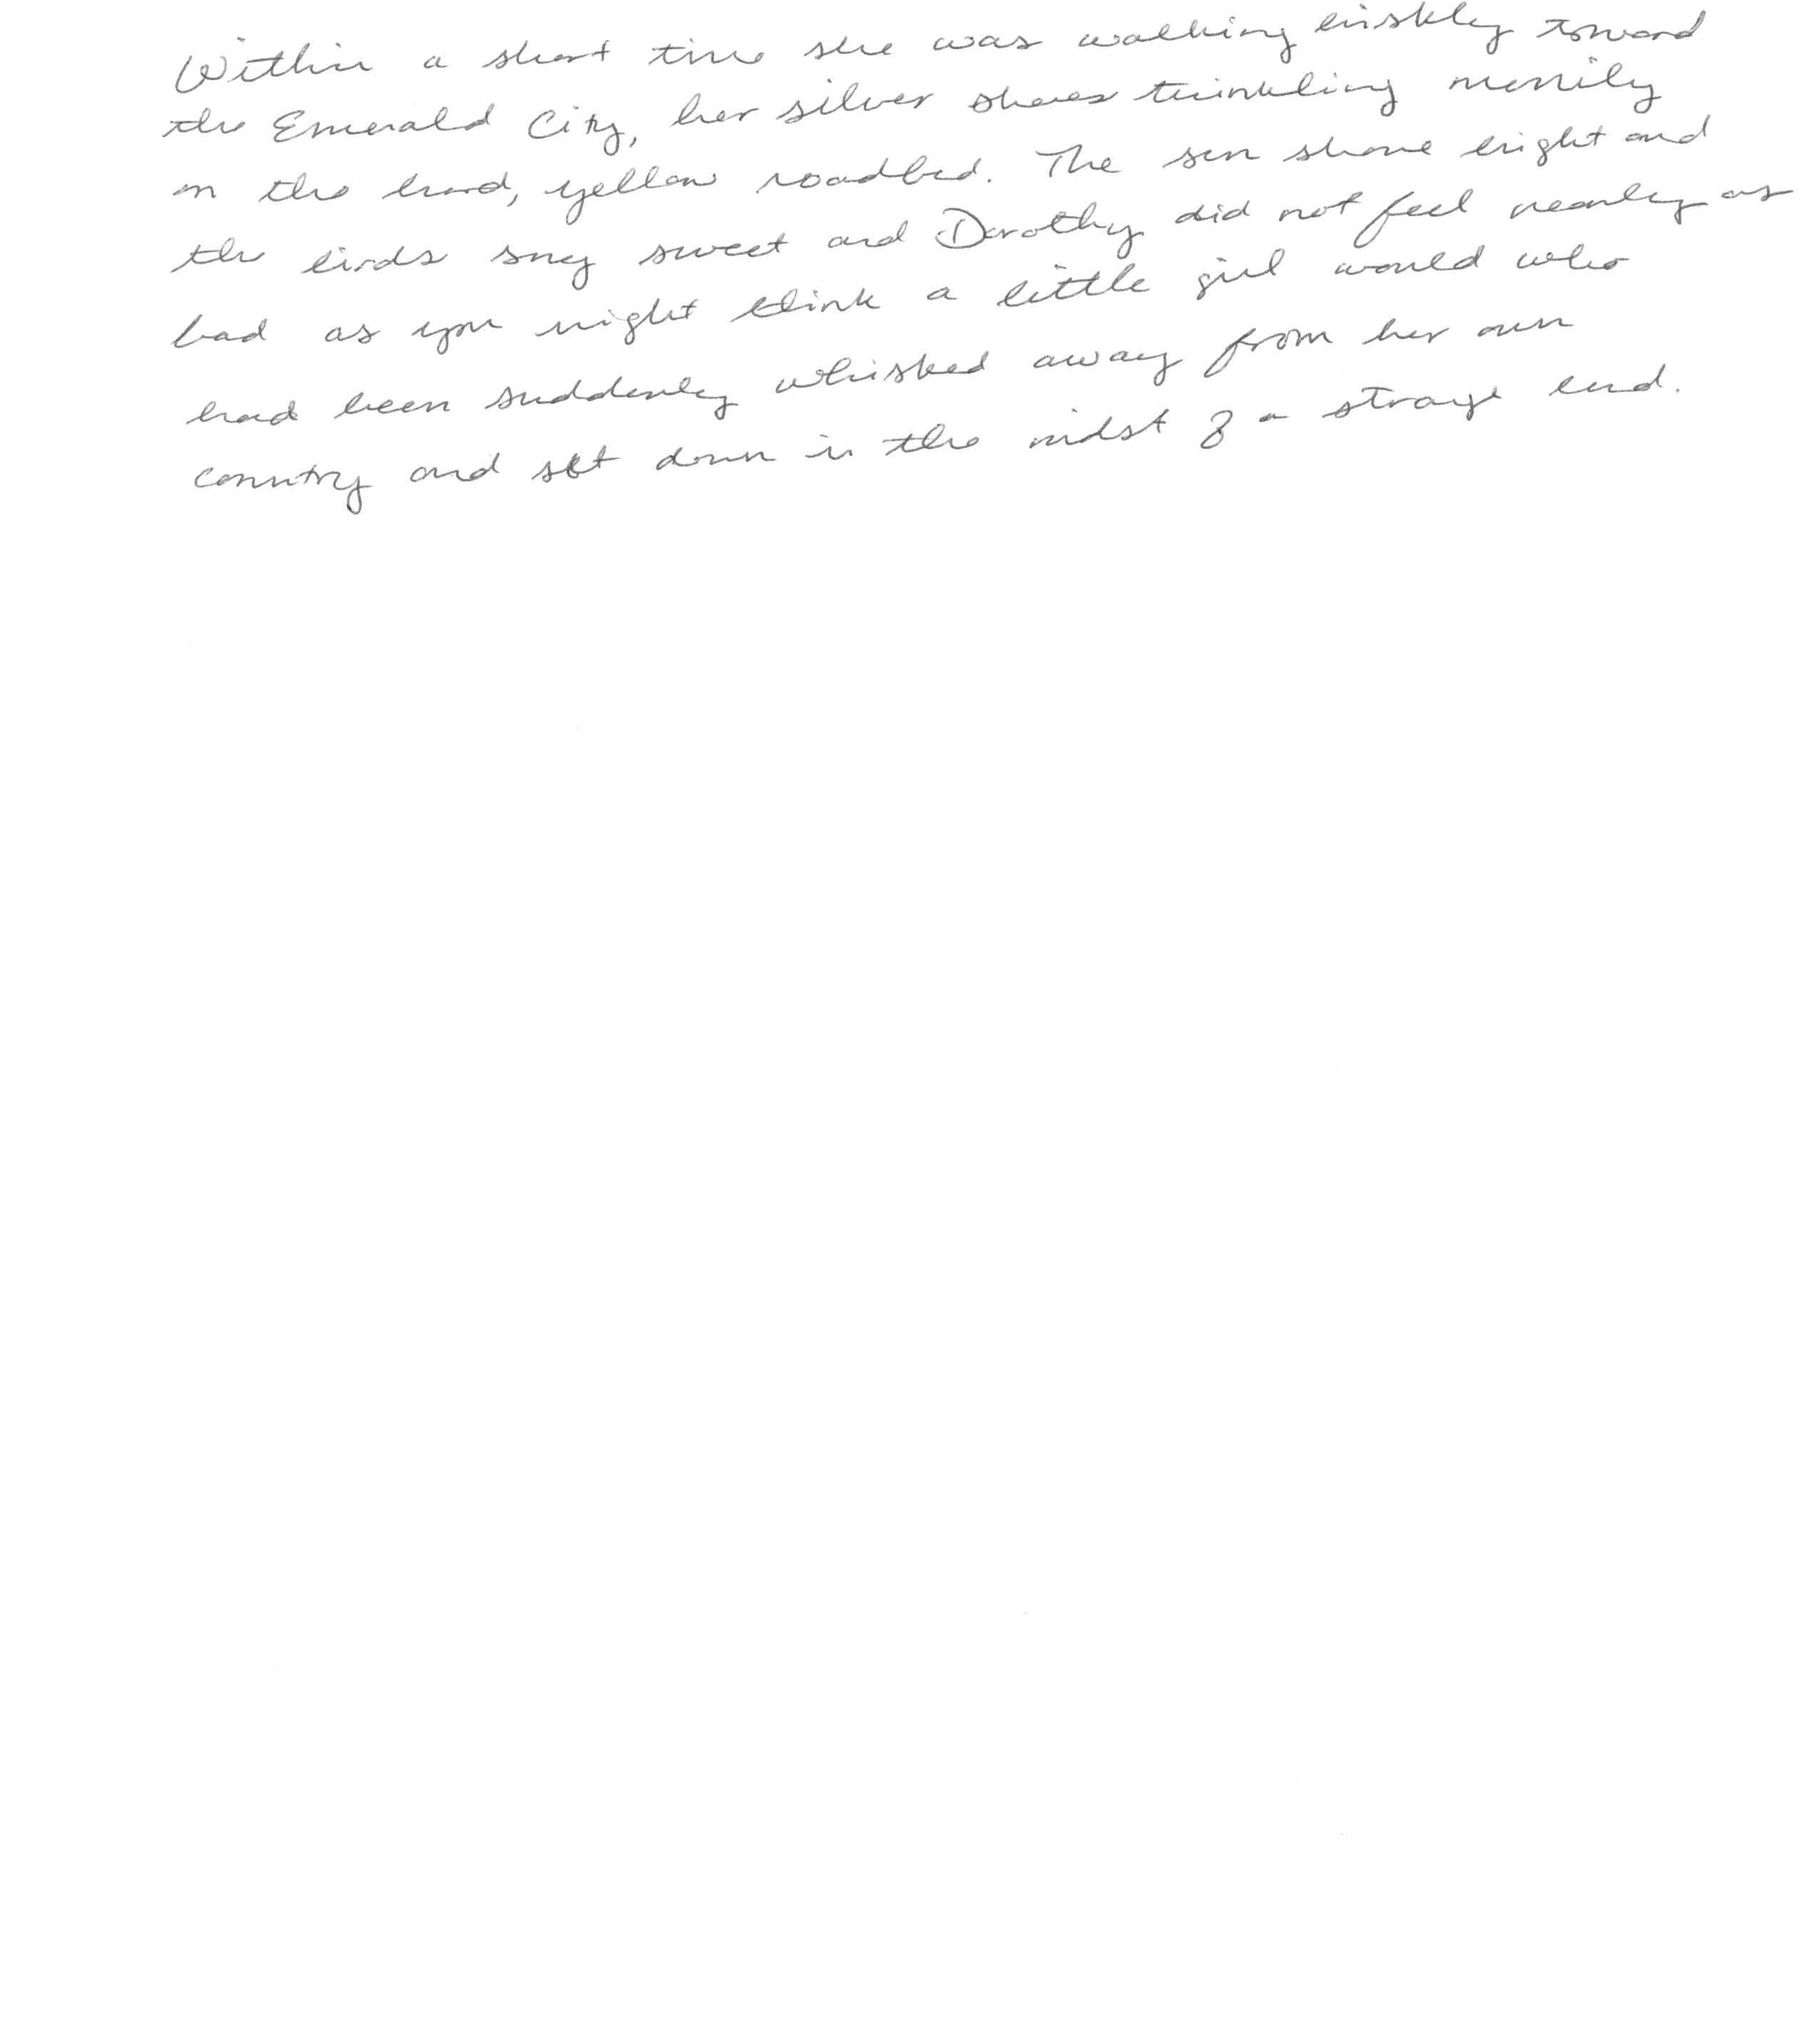 Within a short time she was walking briskly toward
the Emerald City, her silver shoes twinkling merrily
on the hard, yellow roadbed. The sun shone bright and
the birds sang sweet and Dorothy did not feel nearly as
bad as you might think a little girl would who
had been suddenly whisked away from her own
country and set down in the midst of a strange land.